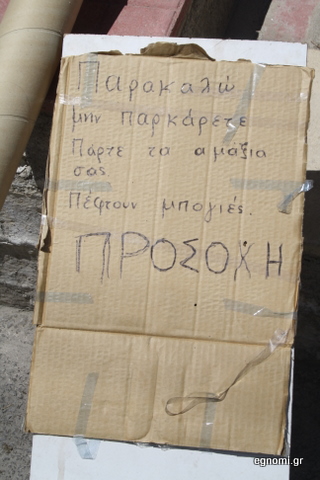 Παρακαλώ
μην παρκάρετε
Πάρτε τα αμάξια
σας
Πέφτουν μπογιές.
ΠΡΟΣΟΧΗ
egnomi.gr